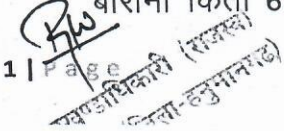 बारानी किता 6
1 | Page
खण्डाधिकारी (राजस्व)
जिला-हनुमानगढ़)